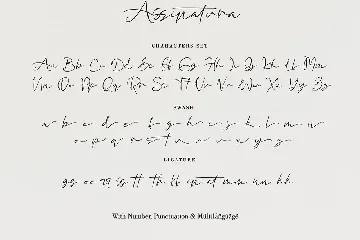 Assinatura
CHARACTERS SET
Aa Bb Cc Dd Ee Ff Gg Hh Ii Jj Kk Ll Mm
Nn Oo Pp Qq Rr Ss Tt Uu Vv Ww Xx Yy Zz
SWASH
a b c d e f g h i j k l m n
o p q r s t u v w x y z
LIGATURE
With Number, Punctuation & Multilanguage